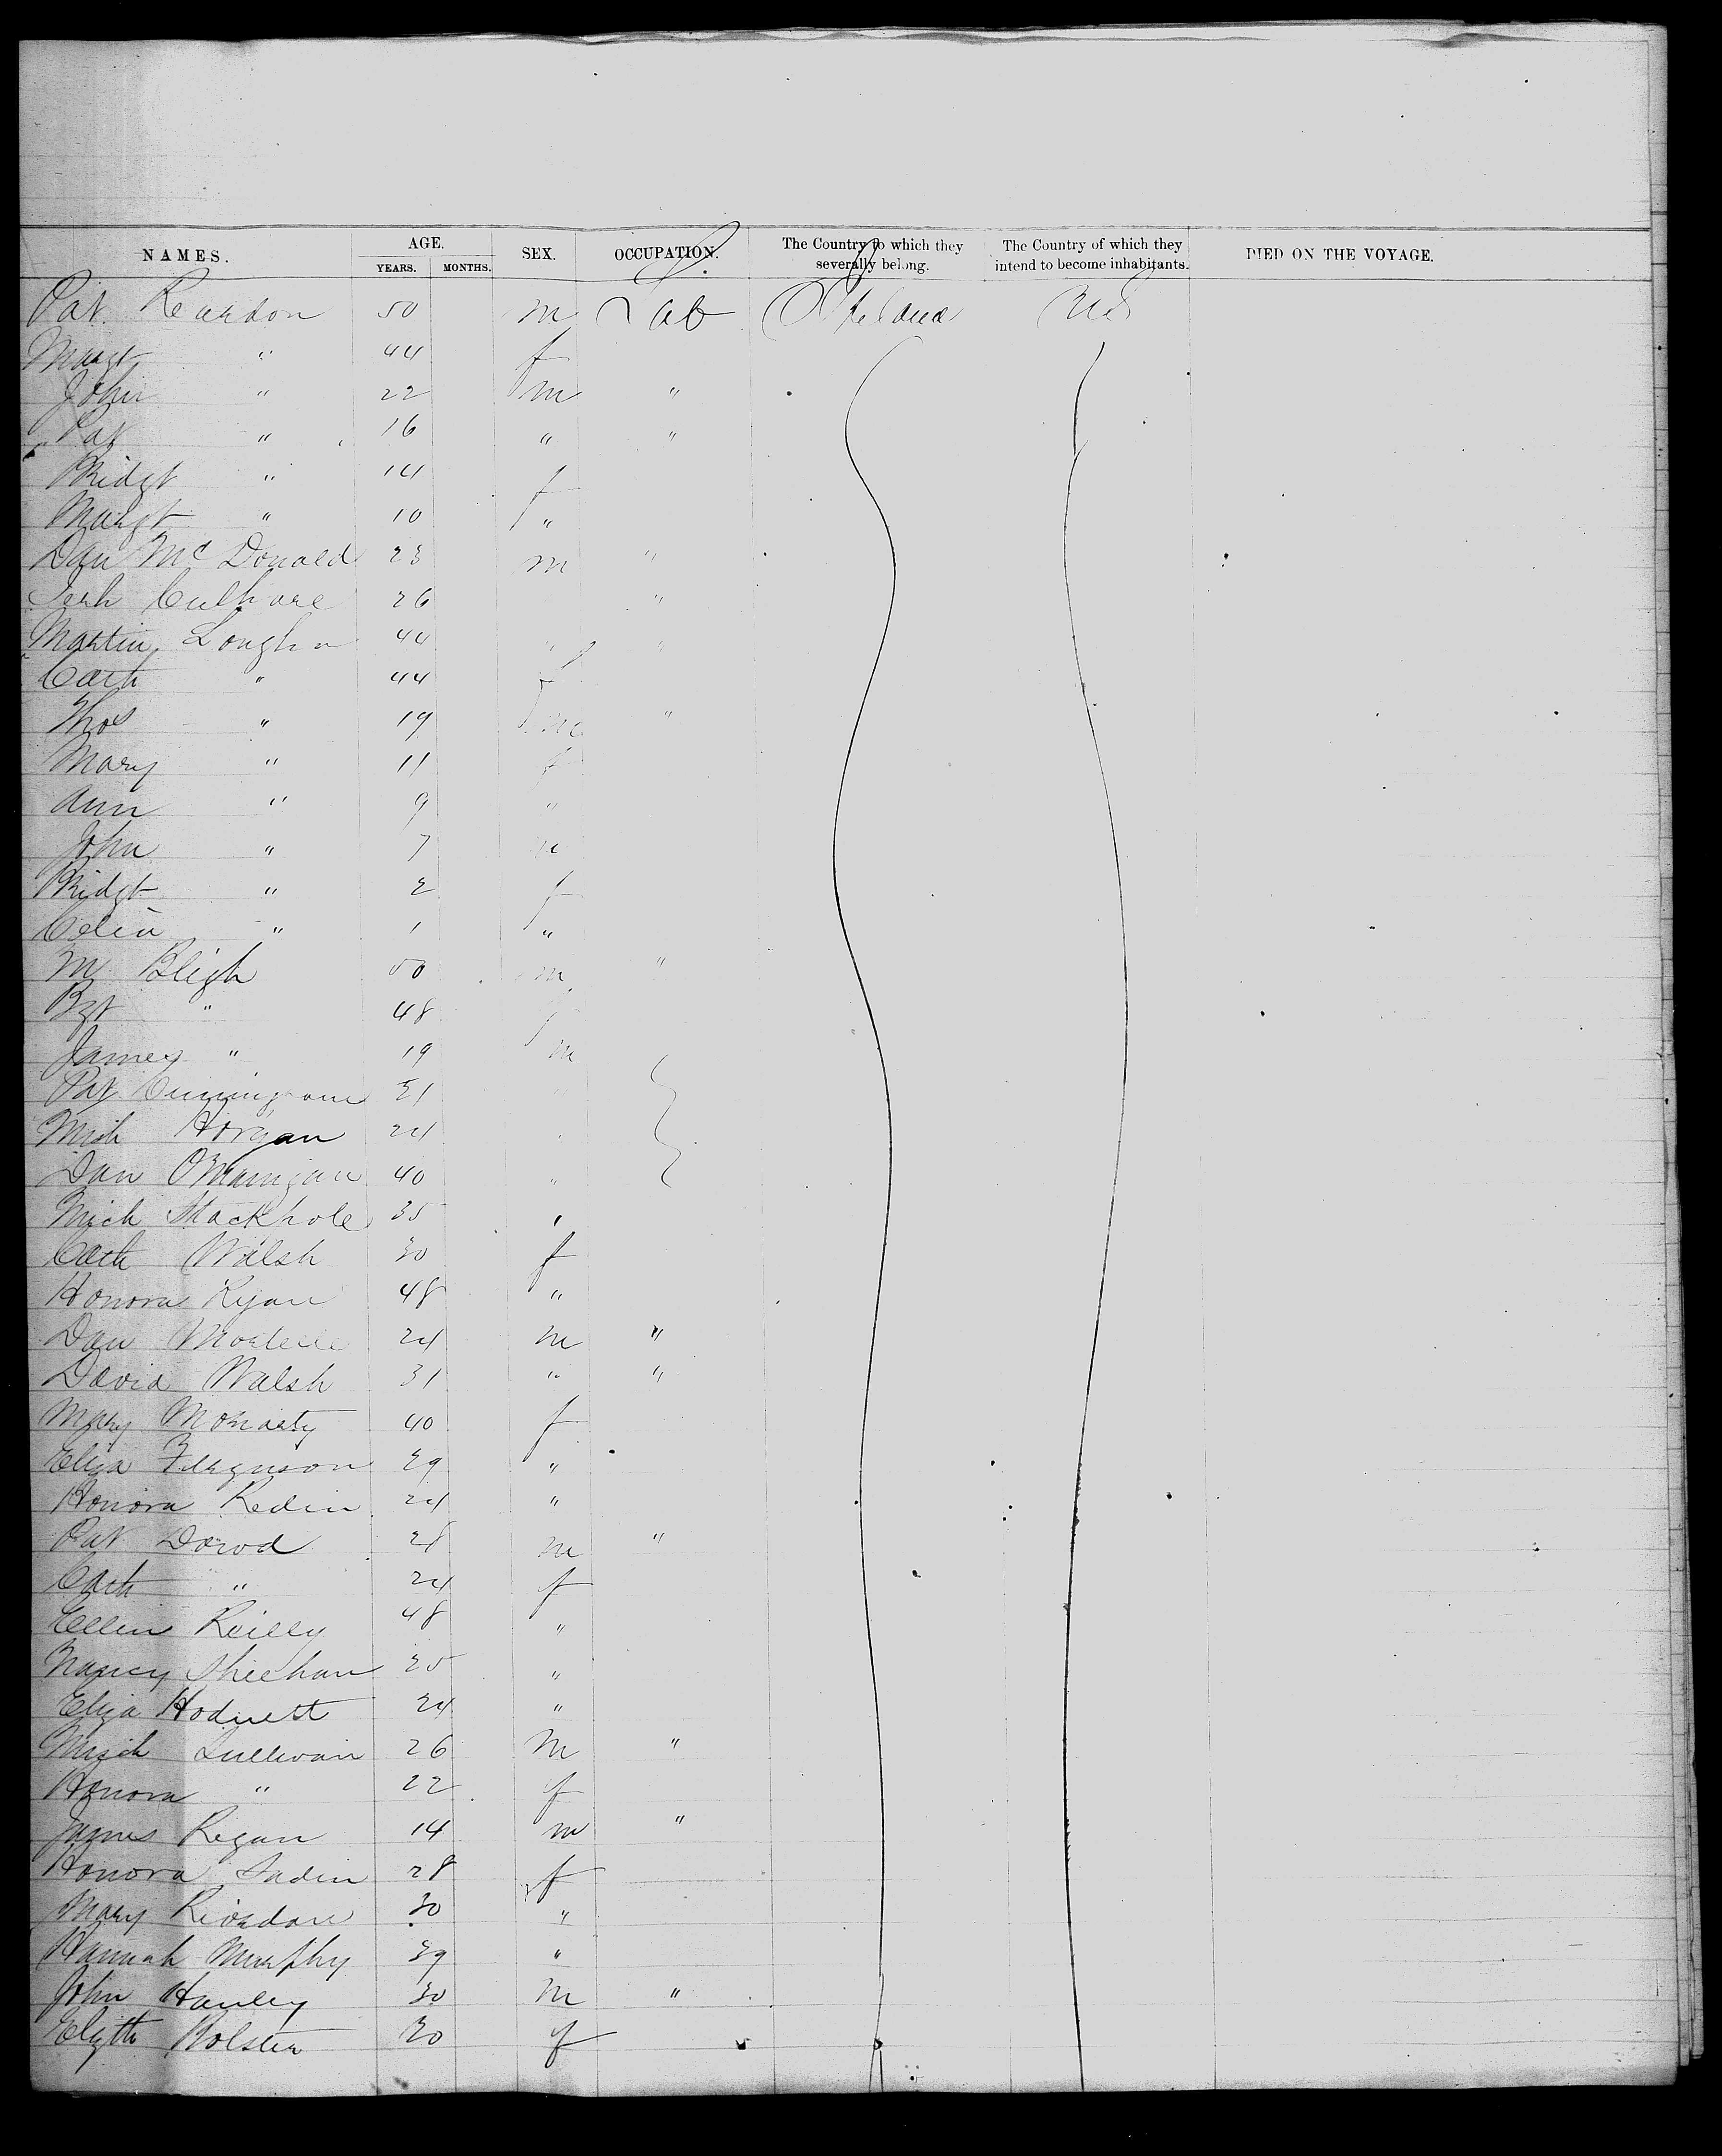 NAMES. AGE. YEARS. MONTHS. SEX. OCCUPATION. The Country to which they severally belong. The Country of which they intend to become inhabitants. DIED ON THE VOYAGE.
Pat Reardon 50 m Lab Ireland US
Margt " 44 f
John " 22 m "
Pat " 16 " "
Bridgt " 14 f
Margt " 10 "
Dan McDonald 23 m "
Culhane 26 "
Martin 44 " "
Cath " 44 f
Thos " 19 m "
Mary " 11 f
Ann " 9 "
John " 7 m
Bridgt " 2 f
Celia " 1 "
M Bligh 50 m "
Bgt " 48 f
James " 19 m
Pat 21 "
Mich Horgan 24
Dan 40 "
Mich Stackhole 35 "
Cath Walsh 30 f
Honora Ryan 48 "
Dan 24 m "
David Walsh 31 " "
Mary Moriarty 40 f
Eliza Ferguson 29 "
Honora Redin 24 "
Pat Dowd 28 m "
Cath " 24 f
Ellen Reilly 48 "
Nancy Sheehan 25 "
Eliza Hodnett 24 "
Mich Sullivan 26 m "
Honora " 22 f
James Regan 14 m "
Honora 28 f
Mary Riordan 30 "
Hannah Murphy 39 "
John Hanley 30 m "
Elizth Bolster 20 f